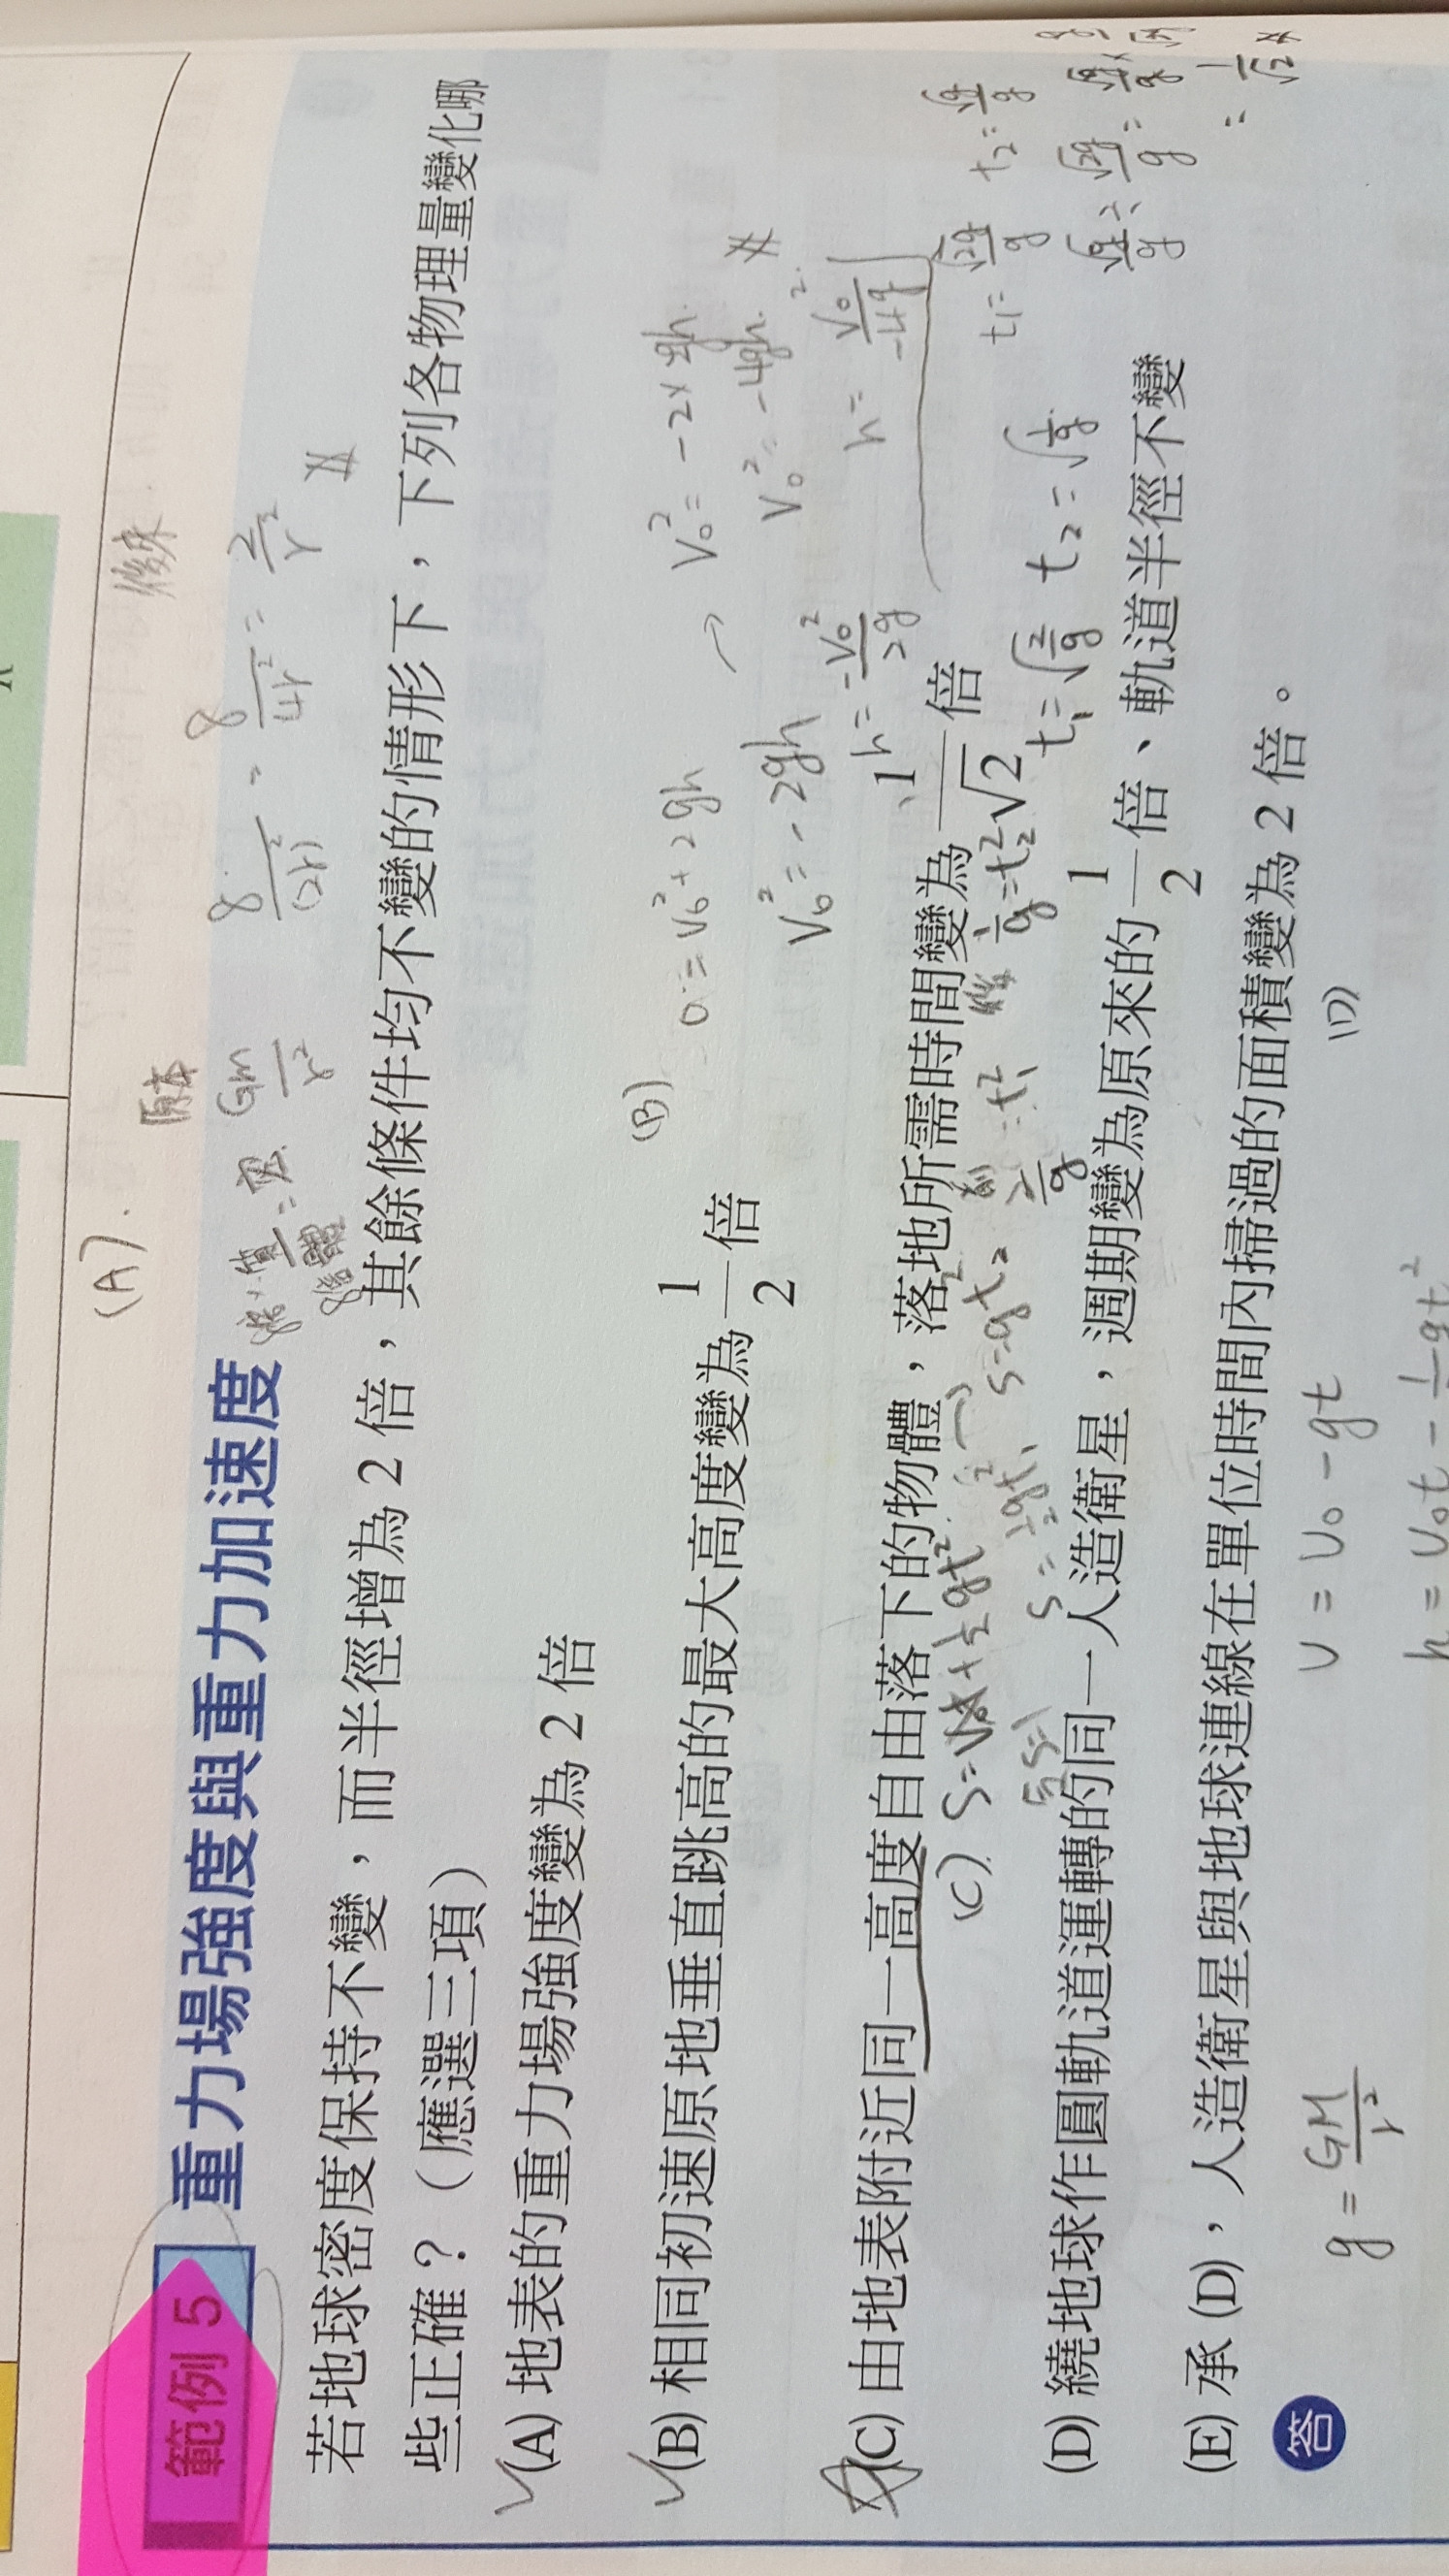 範例 5 重力場強度與重力加速度
若地球密度保持不變，而半徑增為 2 倍，其餘條件均不變的情形下，下列各物理量變化哪
些正確？（應選三項）
(A) 地表的重力場強度變為 2 倍
(B) 相同初速原地垂直跳高的最大高度變為 1/2 倍
(C) 由地表附近同一高度自由落下的物體，落地所需時間變為 1/√2 倍
(D) 繞地球作圓軌道運轉的同一人造衛星，週期變為原來的 1/2 倍、軌道半徑不變
(E) 承 (D)，人造衛星與地球連線在單位時間內掃過的面積變為 2 倍。
答
(A).
原本 GM/r²
後來
8/(2r)² = 8/4r² = 2/r²
(B)
0 = V₀² + 2gh
V₀² = -2gh
h = -V₀²/2g
V₀² = -2×2gh
V₀² = -4gh
h = V₀²/-4g
(C)
t₁ = √2/g t₂ = √1/g
(D)
g = GM/r²
v = v₀ - gt
h = v₀t -